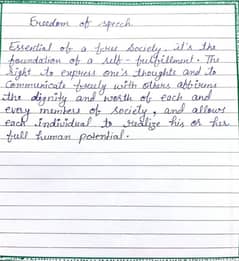 Freedom of speech
Essential of a free society. it's the
foundation of a self-fulfillment. The
right to express one's thoughts and to
communicate freely with others affirms
the dignity and worth of each and
every members of society, and allows
each individual to realize his or her
full human potential.